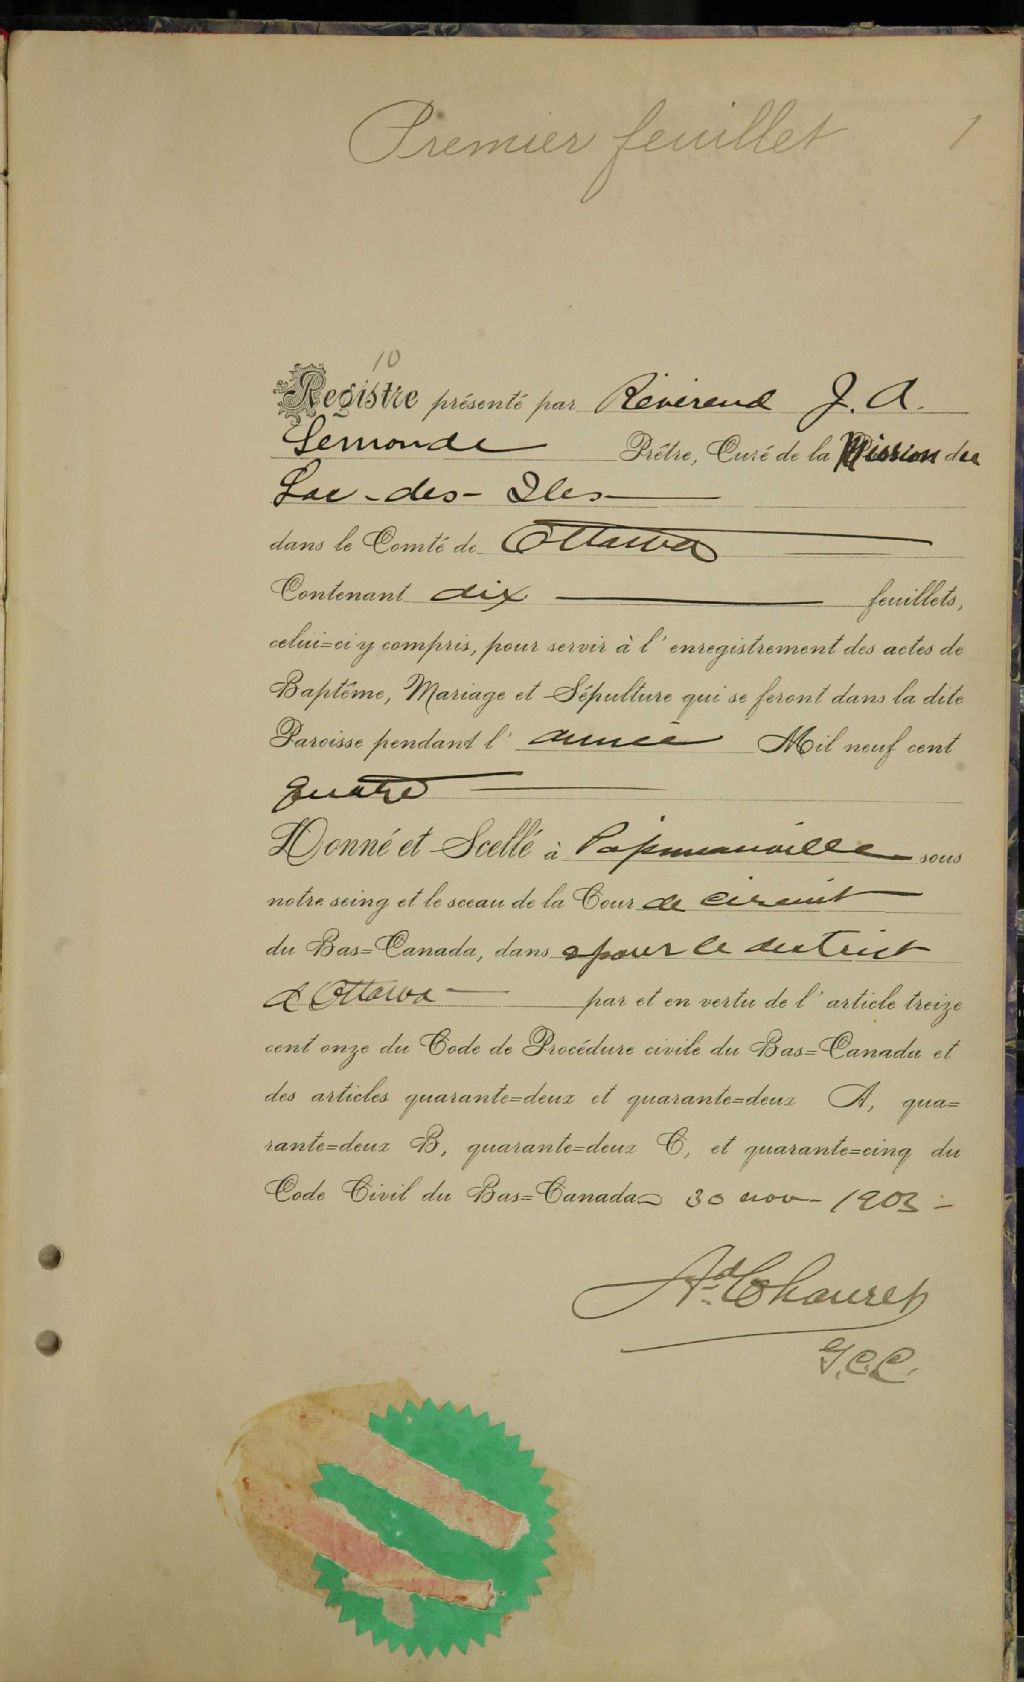 Premier feuillet 1
10
Registre présenté par Révérend J. A.
Lemonde Prêtre, Curé de la Mission du
Lac-des-Iles
dans le Comté de Ottawa
Contenant dix feuillets,
celui=ci y compris, pour servir à l'enregistrement des actes de
Baptême, Mariage et Sépulture qui se feront dans la dite
Paroisse pendant l'année Mil neuf cent
quatre
Donné et Scellé à Papineauville sous
notre seing et le sceau de la Cour de circuit
du Bas=Canada, dans & pour le district
d'Ottawa par et en vertu de l'article treize
cent onze du Code de Procédure civile du Bas=Canada et
des articles quarante=deux et quarante=deux A, qua=
rante=deux B, quarante=deux C, et quarante=cinq du
Code Civil du Bas=Canada 30 nov - 1903 -
Ad. Chauret
G.C.C.